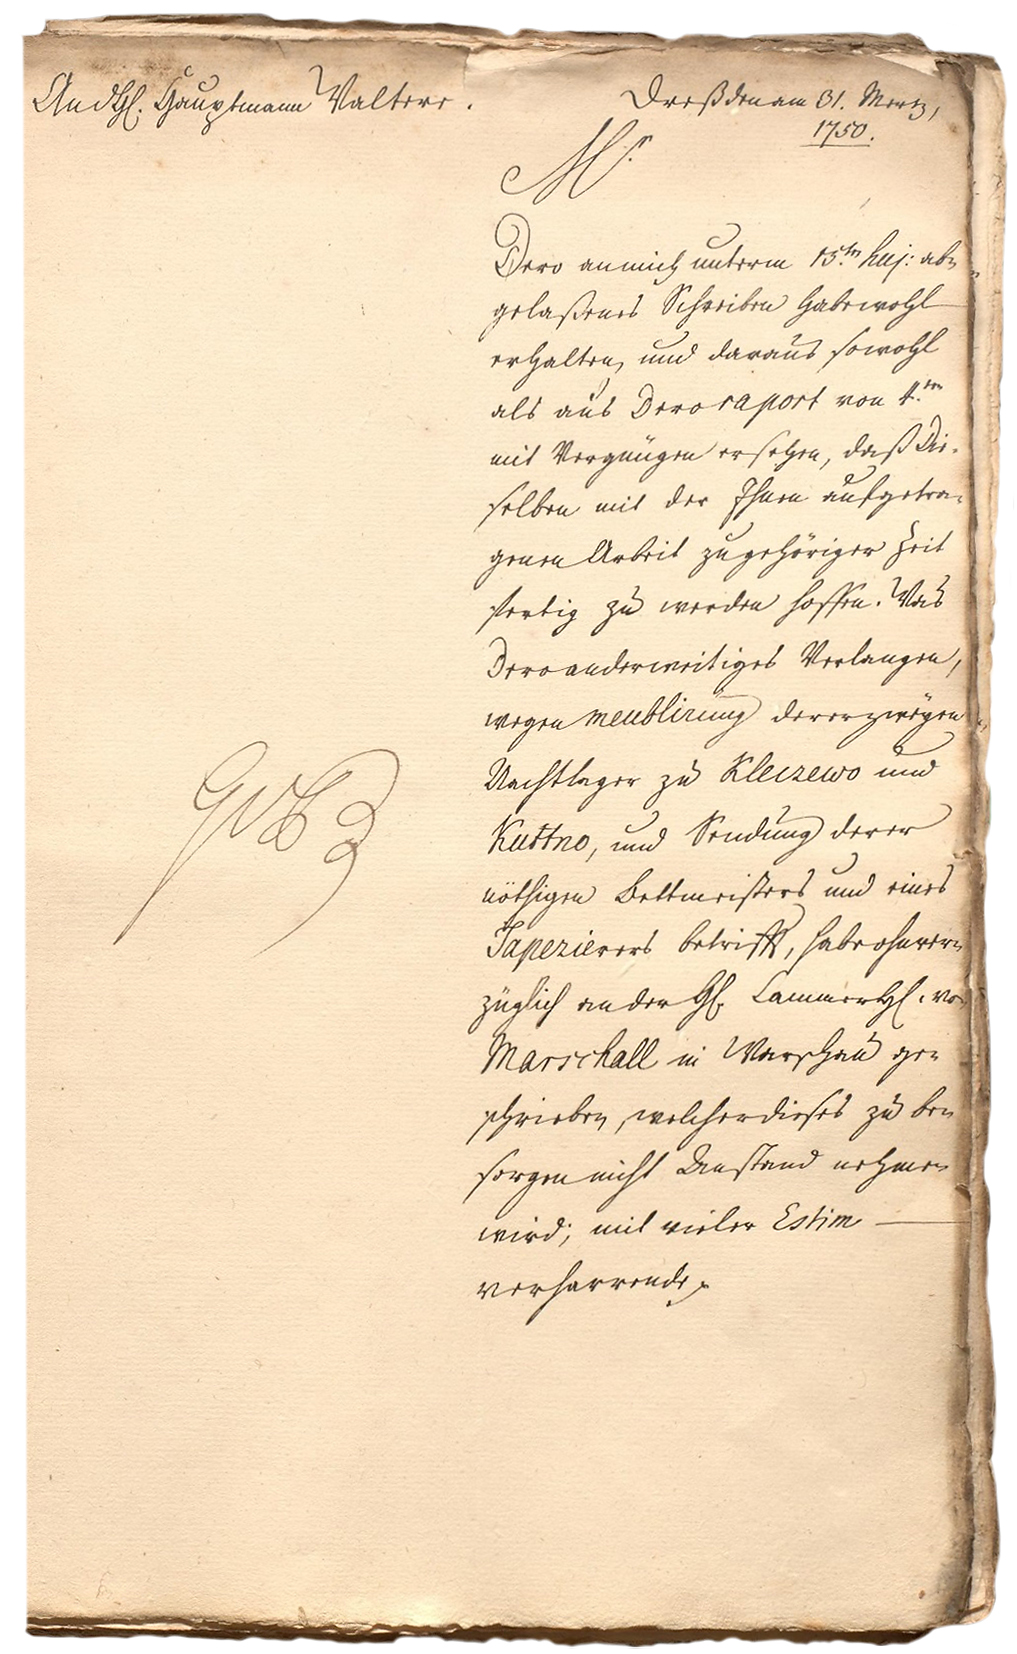 An dH. Hauptmann Walter.
Dreßden am 31. Mertz,
1750.
Mr.
Dero an mich unterm 15.ten huj: ab-
gelaßenes Schreiben habe wohl
erhalten, und daraus sowohl
als aus Dero raport von 4.ten
mit Vergnügen ersehen, daß Die-
selben mit der Ihnen aufgetra-
genen Arbeit zu gehöriger Zeit
fertig zu werden hoffen. Was
Dero anderweitiges Verlangen,
wegen meublirung derer zweyen
Nachtlager zu Kleczewo und
Kuttno, und Sendung derer
nöthigen Bettmeisters und eines
Tapezierers betrifft, habe ohnver-
züglich an den H. CammerH. von
Marschall in Warschau ge-
schrieben, welcher dieses zu be-
sorgen nicht Anstand nehmen
wird; mit vieler Estim
verharrende